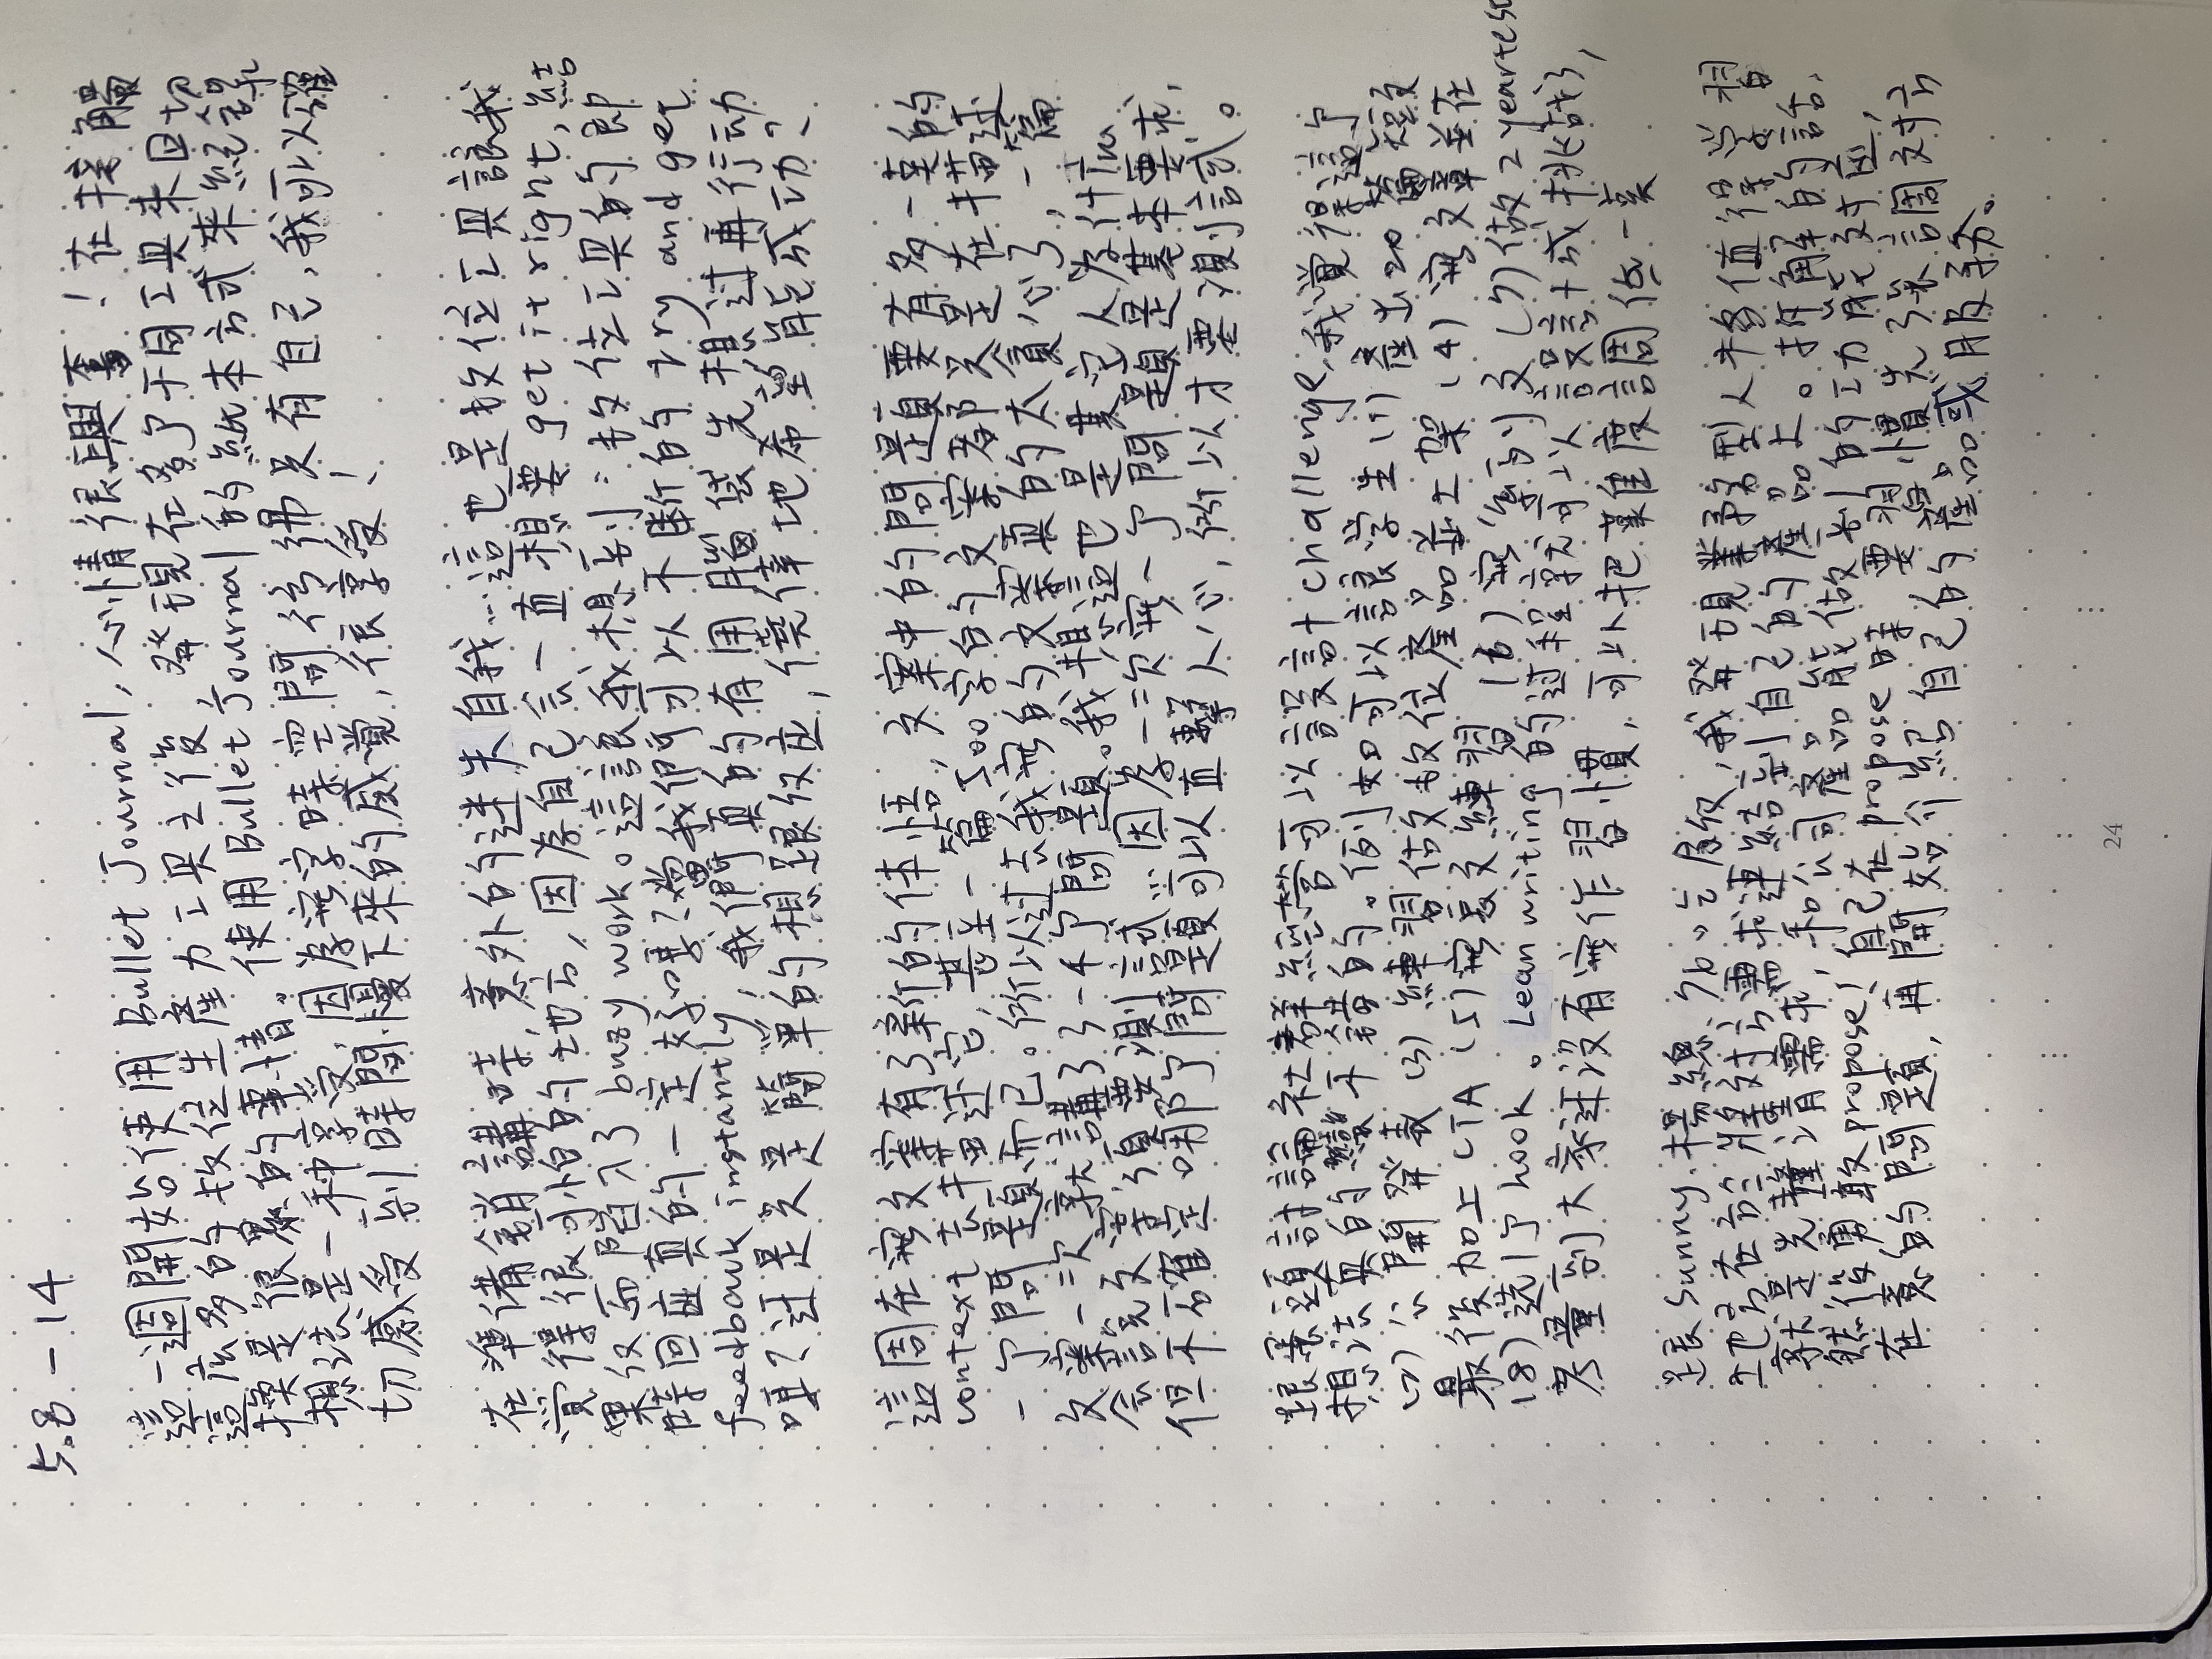 5.8 - 14
這一週開始使用 Bullet Journal, 心情很興奮！在接觸
這麼多的數位生產力工具之後, 發現在多个不同工具來回切
換是很累的事情。使用 Bullet Journal 的紙本方式來紀錄
想法是一种享受, 因為寫字時空間彷彿只有自己, 我可以確
切感受到時間慢下來的感覺, 很享受！
在準備銷講時, 意外的迷失自我...這也是数位工具讓我
覺得很可怕的地方, 因為自己会一直想要 get it right, 結
果反而陷入了 busy work。這讓我想到：数位工具的即
時回应真的一定好嗎？當我們可以不斷的 try and get
feedback instantly, 我們真的有用腦袋先想过再行动
嗎？还是只是簡單的想跟反应, 僥倖地希望能成功？
這周在寫文案有了新的体悟, 文案中的問題要有多一奌的
context 去描述它, 甚至一篇 500 字的文案都只是在描述
一个問題而已。所以过去我寫的文案真的太貪心了, 一篇
文案一次就講了3-4个問題。我想這也是其它人為什麼
会說文案須要測試... 因為一次寫一个問題是基本要求,
但不確定哪个問題可以直擊人心, 所以才要測試。
跟蛋頭討論社群經營可以設計 challenge, 我覺得這个
想法真的蠻不錯的。例如可以讓学生 (1) 產出20篇短文
(2) 公開發表 (3) 練習做数位產品並上架 (4) 寫文章並在
最後加上 CTA (5) 寫長文練習 (6) 寫系列文 (7) 做 2 year test
(8) 選1个 hook。Lean writing 的过程就可以設計成挑战了,
考量到大家还沒有寫作習慣, 可以把難度調低一奌
跟 Sunny, 楊總、吃飯, 我發現業務型人格值得学習
地方在於將对方需求連結到自己的產品上。拆解的話,
就是先釐清需求, 和公司產品能做到的功能对应,
然後勇敢 propose！自己在 propose 時要習慣先強調对方
在意的問題, 再開始介紹自己的產品或服务。
24